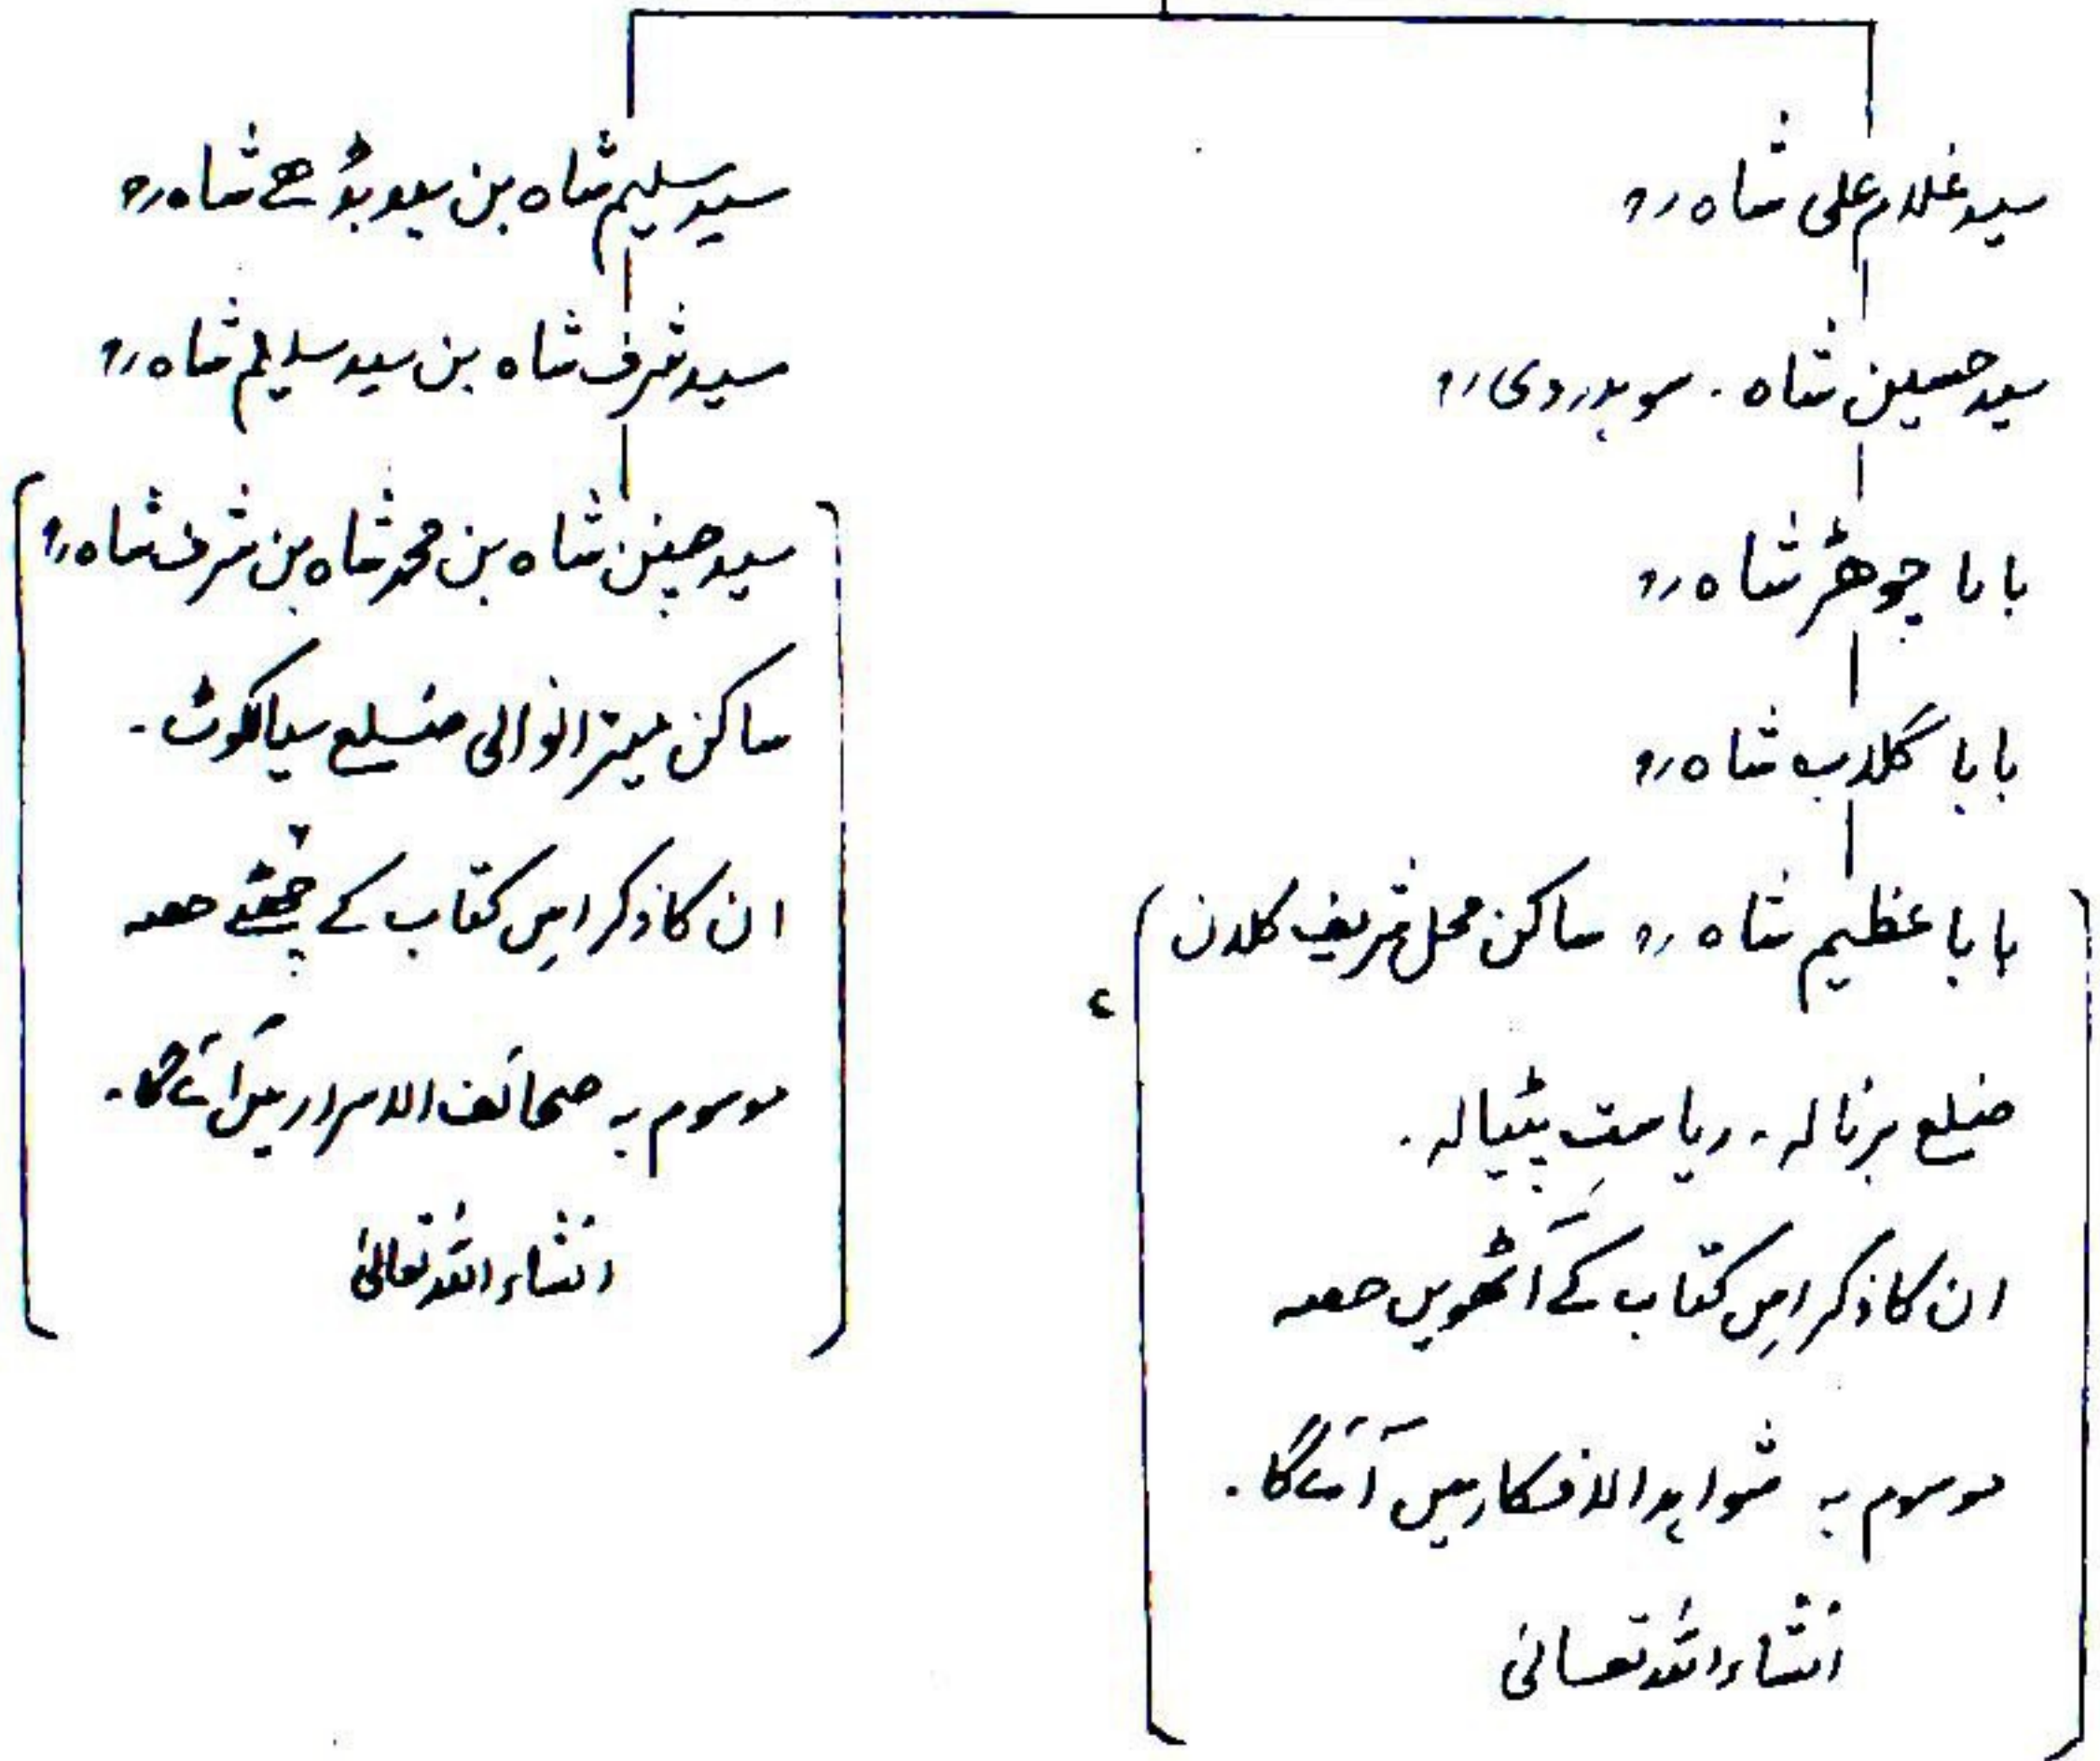 سید غلام علی شاہ رح
سید حسین شاہ۔ سوہدروی رح
بابا جوھڑ شاہ رح
بابا گلاب شاہ رح
بابا عظیم شاہ رح ساکن محل شریف کلان
ضلع برنالہ۔ ریاستِ پٹیالہ۔
ان کا ذکر اِس کتاب کے آٹھویں حصہ
موسوم بہ شواہد الافکار میں آئے گا۔
انشاء اللہ تعالیٰ
سید سلیم شاہ بن سید بُڈھے شاہ رح
سید شرف شاہ بن سید سلیم شاہ رح
سید شاہ بن محمد شاہ بن شرف شاہ رح
ساکن میترانوالی ضلع سیالکوٹ۔
ان کا ذکر اِس کتاب کے چھٹے حصہ
موسوم بہ صحائف الاسرار میں آئے گا۔
انشاء اللہ تعالیٰ